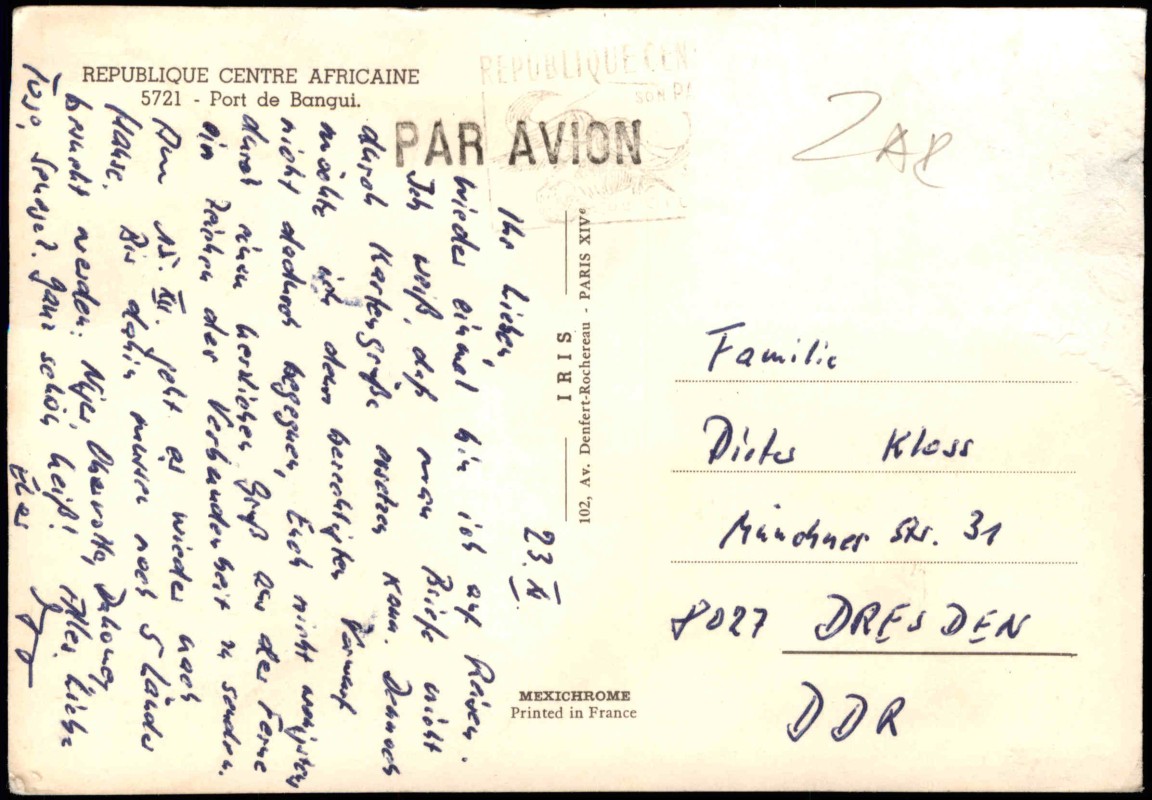 REPUBLIQUE CENTRE AFRICAINE
5721 - Port de Bangui.
REPUBLIQUE CEN
SON PA
PAR AVION
ZAR
23. XI.
Ihr Lieben,
wieder einmal bin ich auf Reisen.
Ich weiß, daß man Briefe nicht
durch Kartengrüße ersetzen kann. Dennoch
möchte ich dem berechtigten Vorwurf
nicht dadurch begegnen, Euch nicht wenigstens
durch einen herzlichen Gruß aus der Ferne
ein Zeichen der Verbundenheit zu senden.
Am 15. XII. geht es wieder nach
Hause. Bis dahin müssen noch 5 Länder
besucht werden: Niger, Obervolta, Dahomey
Togo, Senegal. Ganz schön heiß! Alles Liebe
Euer
IRIS
102, Av. Denfert-Rochereau - PARIS XIVe
MEXICHROME
Printed in France
Familie
Dieter Kloss
Münchner Str. 31
8027 DRESDEN
DDR